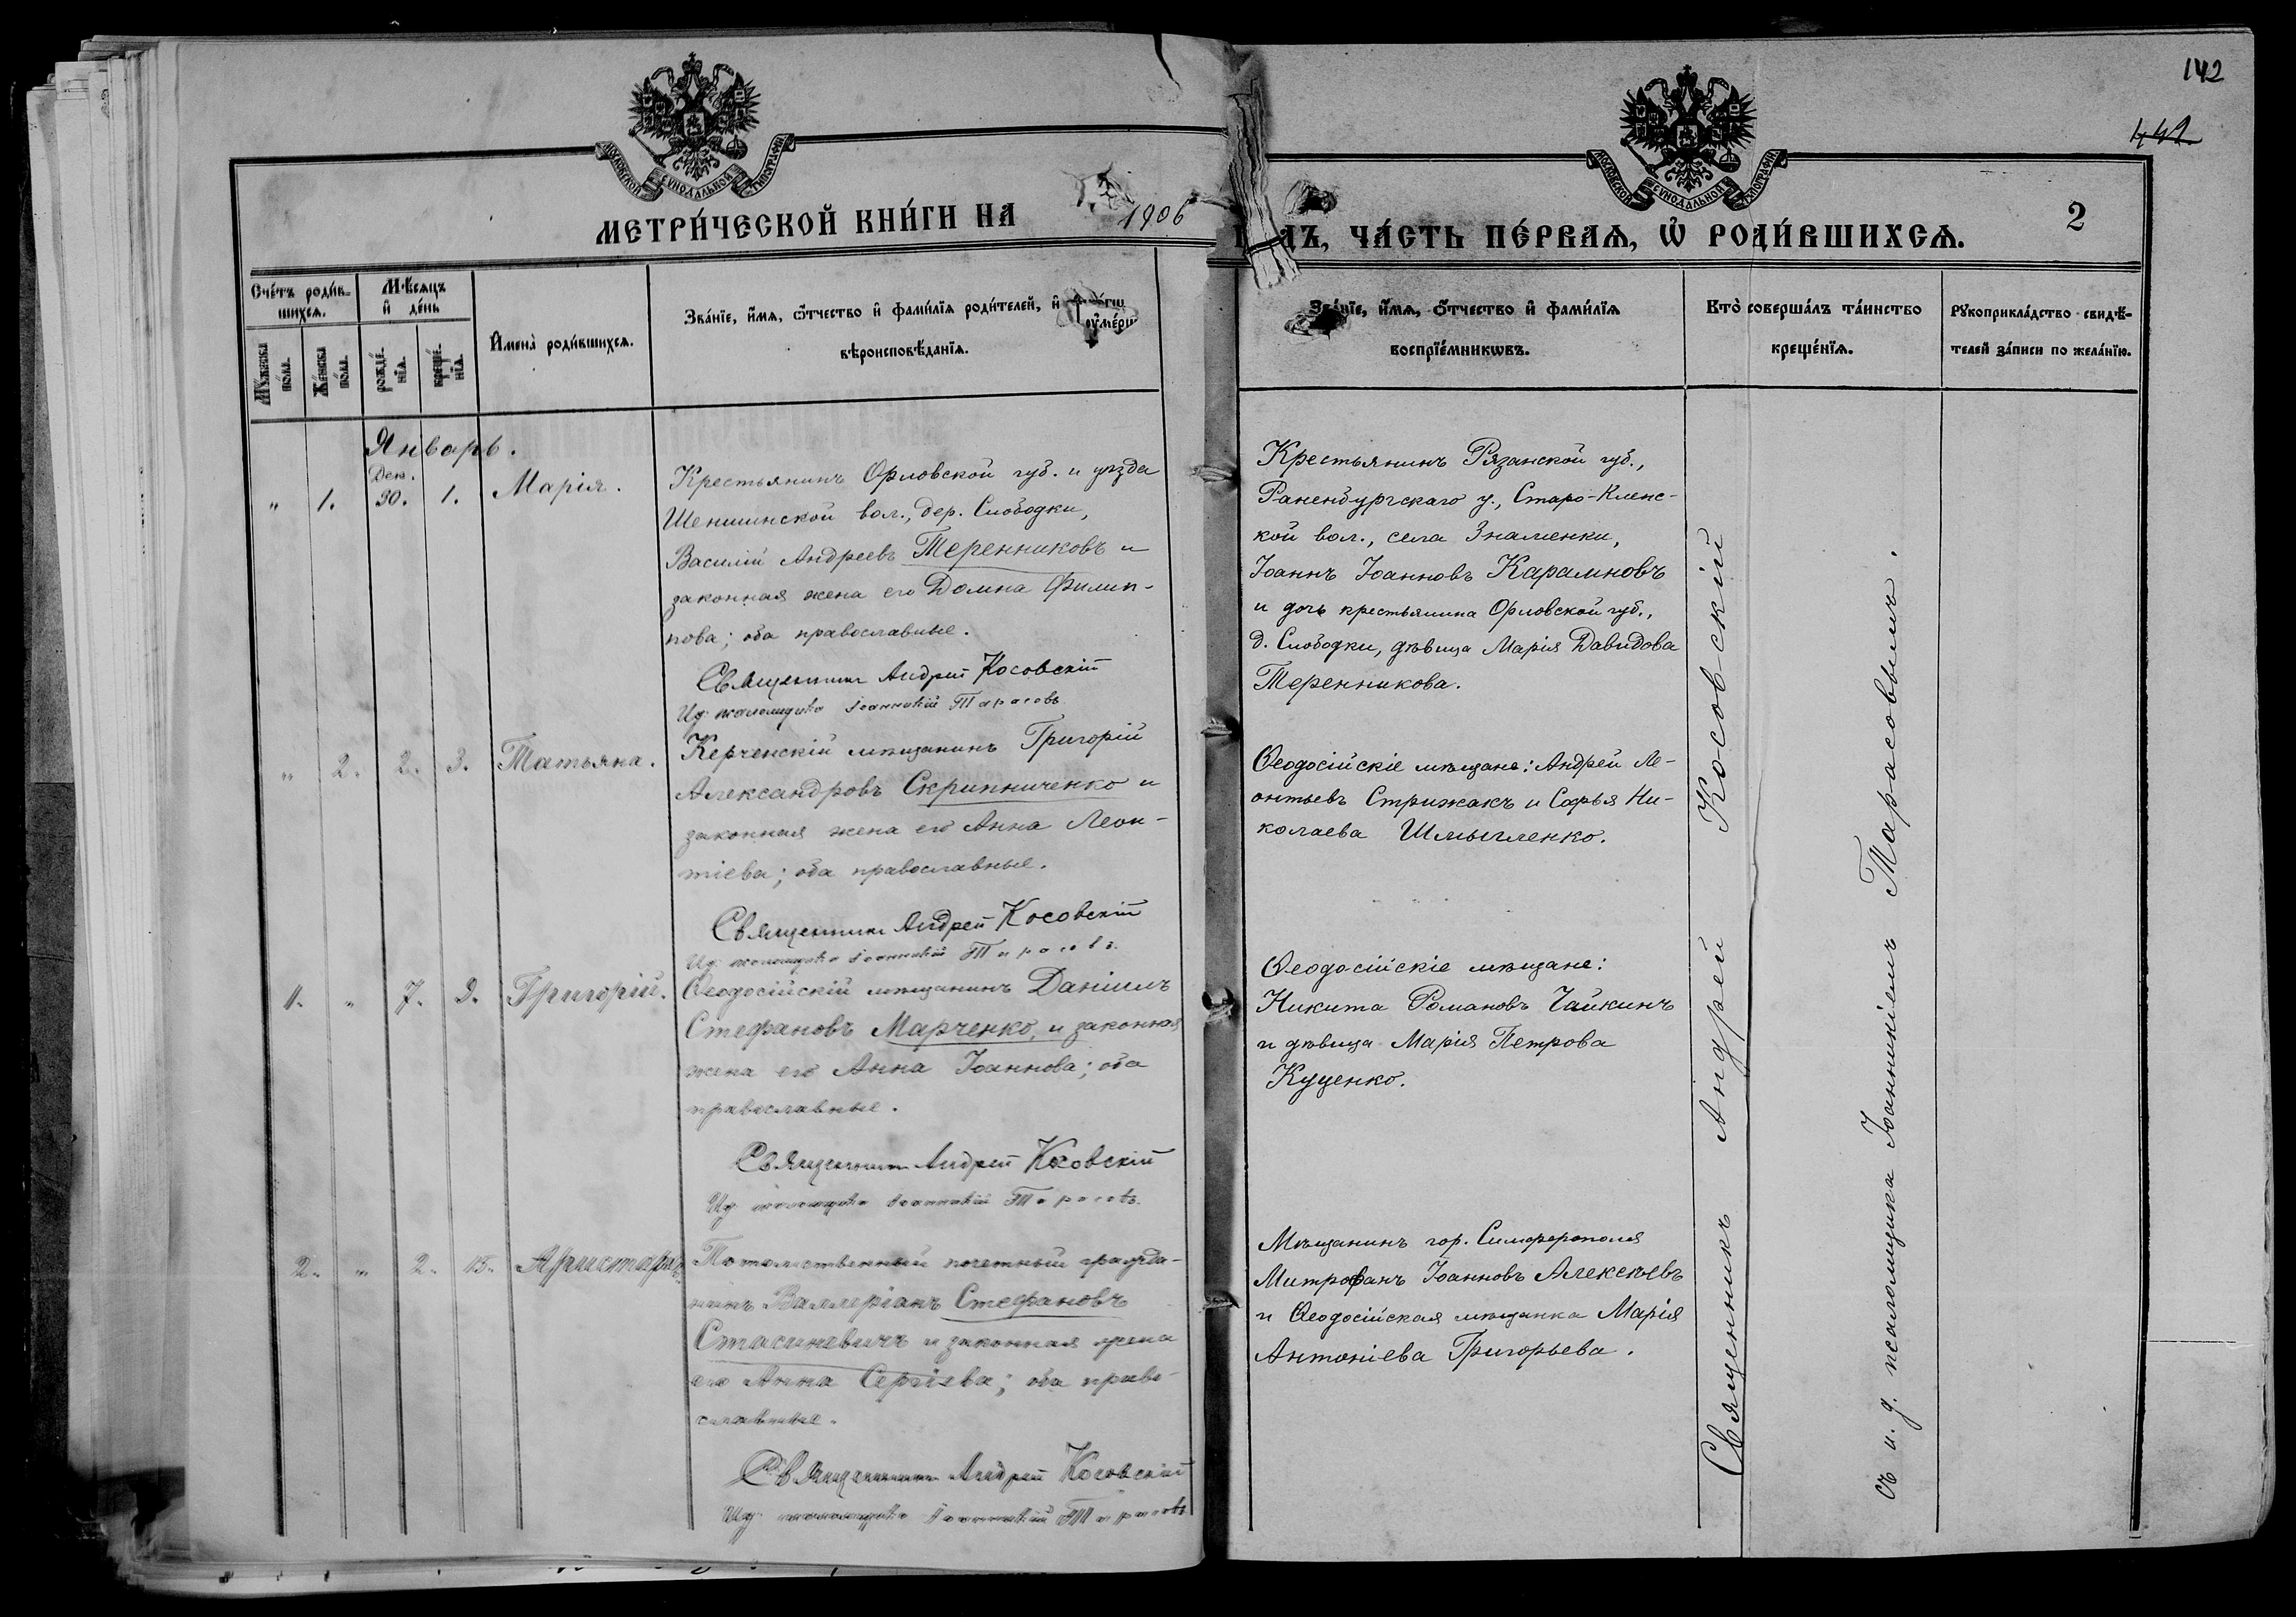 142
442
МОСКОВСКОЙ СѴНОДАЛЬНОЙ ТИПОГРАФІИ
МОСКОВСКОЙ СѴНОДАЛЬНОЙ ТИПОГРАФІИ
МЕТРИ́ЧЕСКОЙ КНИ́ГИ НА 1906
ДЪ, ЧА́СТЬ ПЕ́РВАѦ, Ѡ҆ РОДИ́ВШИХСѦ.
2
Сче́тъ роди́в-
шихсѧ.
Мѣ́сѧцъ
и҆ де́нь
Му́жеска
по́ла.
Же́нска
по́ла.
рожде́-
нїѧ.
креще́-
нїѧ.
И҆мена̀ роди́вшихсѧ.
Зва́нїе, и҆́мѧ, ѻ҆́тчество и҆ фами́лїѧ роди́телей, и҆
вѣроисповѣ́данїѧ.
Зва́нїе, и҆́мѧ, ѻ҆́тчество и҆ фами́лїѧ
воспрїе́мникѡвъ.
Кто̀ соверша́лъ та́инство
креще́нїѧ.
Рꙋкоприкла́дство свидѣ́-
телей за́писи по жела́нїю.
Январь.
Дек.
" 1. 30. 1. Марія.
Крестьянинъ Орловской губ. и уѣзда
Шеншинской вол., дер. Слободки,
Василій Андреевъ Теренниковъ и
законная жена его Домна Филип-
пова; оба православные.
Священникъ Андрей Косовскій
И.д. псаломщика Іоанникій Тарасовъ.
Крестьянинъ Рязанской губ.,
Раненбургскаго у., Старо-Кленс-
кой вол., села Знаменки,
Іоаннъ Іоанновъ Карамновъ
и дочь крестьянина Орловской губ.,
д. Слободки, дѣвица Марія Давидова
Теренникова.
" 2. 2. 3. Татьяна.
Керченскій мѣщанинъ Григорій
Александровъ Скрипниченко и
законная жена его Анна Леон-
тіева; оба православные.
Священникъ Андрей Косовскій
И.д. псаломщика Іоанникій Тарасовъ.
Ѳеодосійскіе мѣщане: Андрей Ле-
онтьевъ Стрижакъ и Софья Ни-
колаева Шмыгленко.
1. " 7. 9. Григорій.
Ѳеодосійскій мѣщанинъ Даніилъ
Стефановъ Марченко, и законная
жена его Анна Іоаннова; оба
православные.
Священникъ Андрей Косовскій
И.д. псаломщика Іоанникій Тарасовъ.
Ѳеодосійскіе мѣщане:
Никита Романовъ Чайкинъ
и дѣвица Марія Петрова
Куценко.
2. " 2. 15. Аристархъ
Потомственный почетный гражда-
нинъ Валлеріанъ Стефановъ
Стасиневичъ и законная жена
его Анна Сергіева; оба право-
славные.
Священникъ Андрей Косовскій
И.д. псаломщика Іоанникій Тарасовъ
Мѣщанинъ гор. Симферополя
Митрофанъ Іоанновъ Алексѣевъ
и Ѳеодосійская мѣщанка Марія
Антоніева Григорьева.
Священникъ Андрей Косовскій
съ и.д. псаломщика Іоанникіемъ Тарасовымъ.